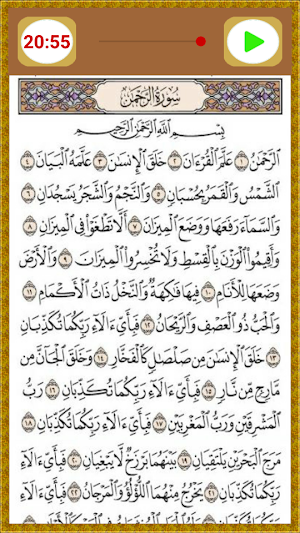 20:55
سُورَةُ الرَّحْمَٰن
بِسْمِ اللَّهِ الرَّحْمَٰنِ الرَّحِيمِ
الرَّحْمَٰنُ ١ عَلَّمَ الْقُرْءَانَ ٢ خَلَقَ الْإِنسَٰنَ ٣ عَلَّمَهُ الْبَيَانَ ٤
الشَّمْسُ وَالْقَمَرُ بِحُسْبَانٍ ٥ وَالنَّجْمُ وَالشَّجَرُ يَسْجُدَانِ ٦
وَالسَّمَاءَ رَفَعَهَا وَوَضَعَ الْمِيزَانَ ٧ أَلَّا تَطْغَوْا فِي الْمِيزَانِ ٨
وَأَقِيمُوا الْوَزْنَ بِالْقِسْطِ وَلَا تُخْسِرُوا الْمِيزَانَ ٩ وَالْأَرْضَ
وَضَعَهَا لِلْأَنَامِ ١٠ فِيهَا فَٰكِهَةٌ وَالنَّخْلُ ذَاتُ الْأَكْمَامِ ١١
وَالْحَبُّ ذُو الْعَصْفِ وَالرَّيْحَانُ ١٢ فَبِأَيِّ ءَالَاءِ رَبِّكُمَا تُكَذِّبَانِ
١٣ خَلَقَ الْإِنسَٰنَ مِن صَلْصَٰلٍ كَالْفَخَّارِ ١٤ وَخَلَقَ الْجَانَّ مِن
مَّارِجٍ مِّن نَّارٍ ١٥ فَبِأَيِّ ءَالَاءِ رَبِّكُمَا تُكَذِّبَانِ ١٦ رَبُّ
الْمَشْرِقَيْنِ وَرَبُّ الْمَغْرِبَيْنِ ١٧ فَبِأَيِّ ءَالَاءِ رَبِّكُمَا تُكَذِّبَانِ ١٨
مَرَجَ الْبَحْرَيْنِ يَلْتَقِيَانِ ١٩ بَيْنَهُمَا بَرْزَخٌ لَّا يَبْغِيَانِ ٢٠ فَبِأَيِّ ءَالَاءِ
رَبِّكُمَا تُكَذِّبَانِ ٢١ يَخْرُجُ مِنْهُمَا اللُّؤْلُؤُ وَالْمَرْجَانُ ٢٢ فَبِأَيِّ ءَالَاءِ